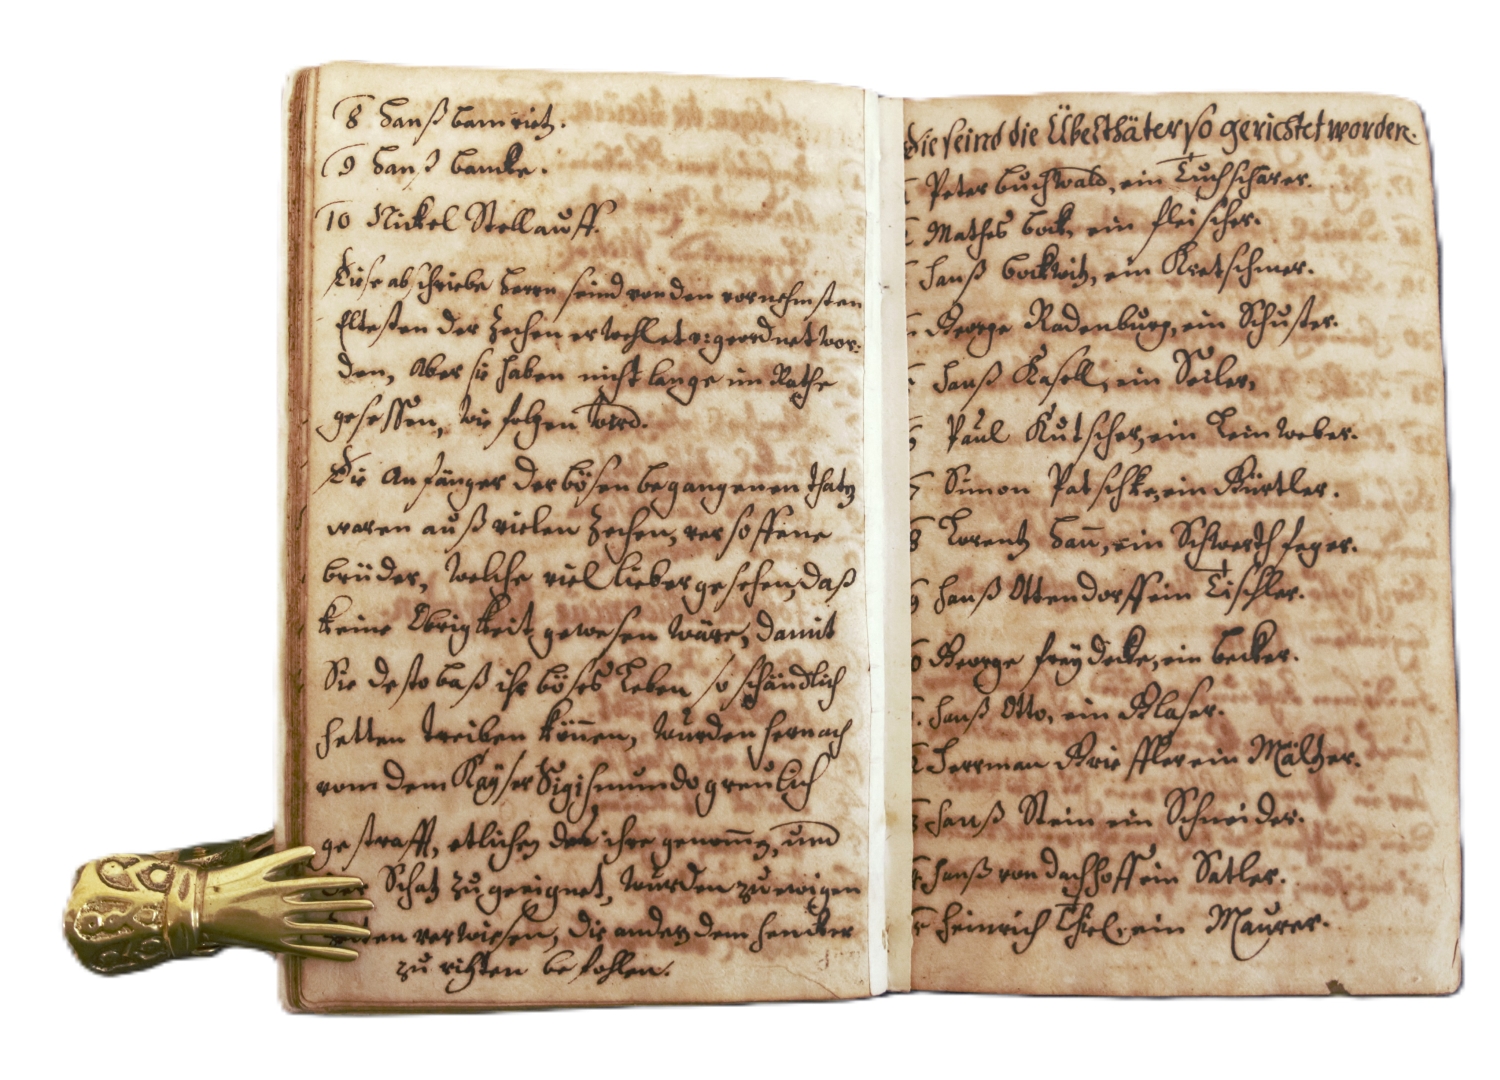 8 Hanß Bamritz.
9 Hanß Bancke.
10 Nickel Stellauff.
Diese abschriebe Herrn seind von den vornehmsten
Eltesten der Zechen erwehlet v: geordnet wor:
den, Aber sie haben nicht lange im Rathe
gesessen, wie folgen wird.
Die Anfänger der bösen begangenen that
waren auß vielen Zechen, versoffene
brüder, welche viel lieber gesehen, daß
keine Obrigkeit gewesen wäre, damit
Sie desto baß ihr böses Leben so schändlich
hetten treiben können, wurden hernach
vom dem Kayser Sigismundo greulich
gestrafft, etlichen das ihre genomen, und
der Schatz zugeeignet, wurden zu ewigen
Zeiten verwiesen, die anderen dem Hencker
zu richten befohlen.
Die seind die Übelthäter so gerichtet worden.
Peter Buchwald, ein Tuchschärer.
Mathes Bock, ein fleischer.
Hanß Bockwitz, ein Kretschmer.
George Radenburg, ein Schuster.
Hanß Kasell, ein Seiler,
6 Paul Kutscher, ein Leinweber.
7 Simon Patschke, ein Gürtler.
8 Lorentz Han, ein Schwerthfeger.
9 Hanß Ottendorff ein Tischler.
George freydecke, ein becker.
Hanß Otto, ein Glaser.
Herrman Grieffler ein Mältzer.
Hanß Stein ein Schneider.
Hanß von dachhoff ein Satler.
Heinrich Thiel, ein Maurer.